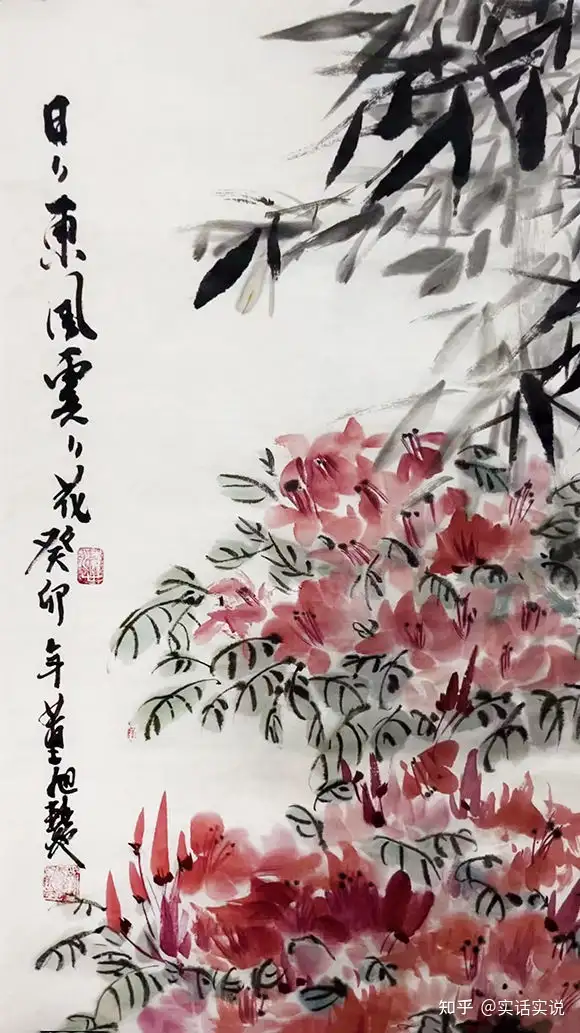 日〻東風處〻花癸卯年董旭
知乎 @实话实说